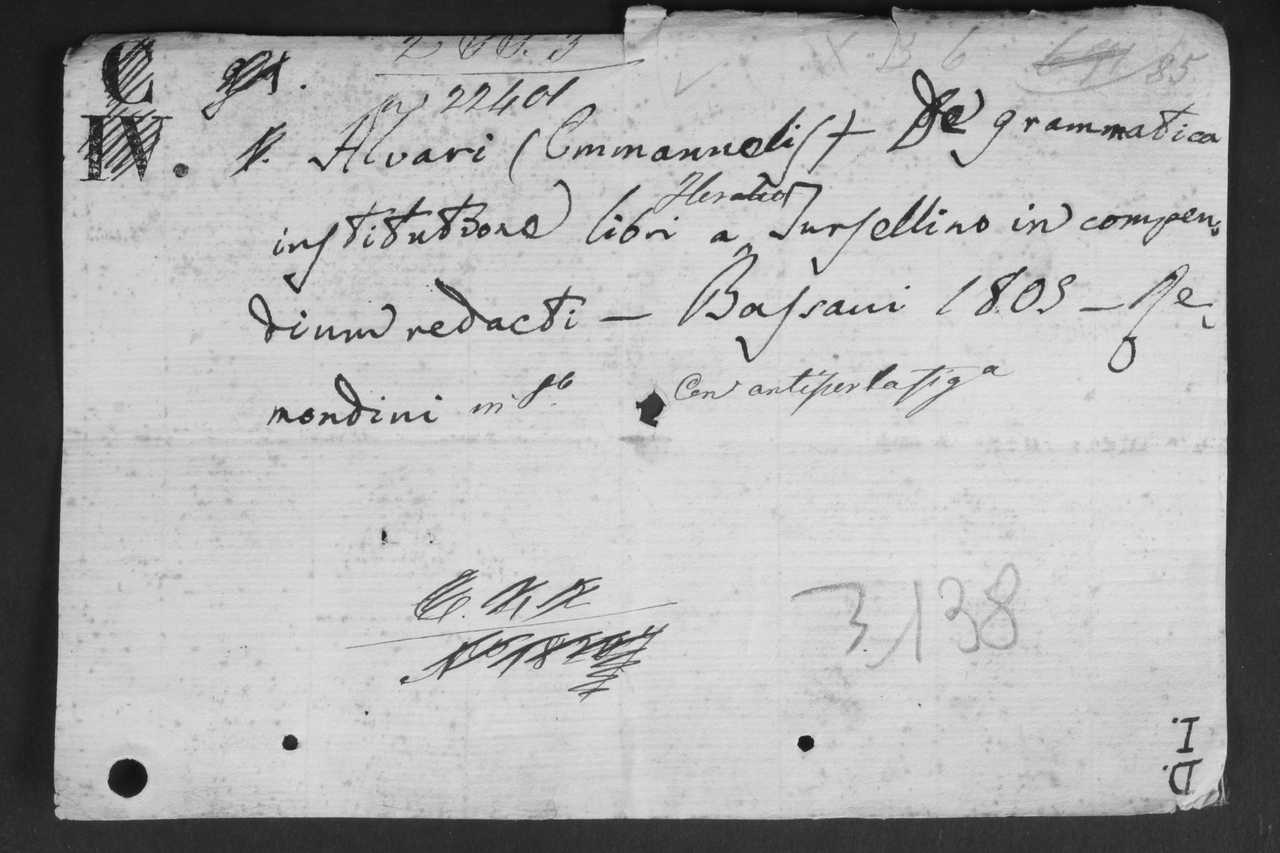 C
IV.
22401
Alvari (Emmanuelis) De grammatica
institutione libri a Horatio Tursellino in compen-
dium redacti — Bassani 1803 — Re-
mondini in 8.º Con antiporta figª
3138
I.
D.